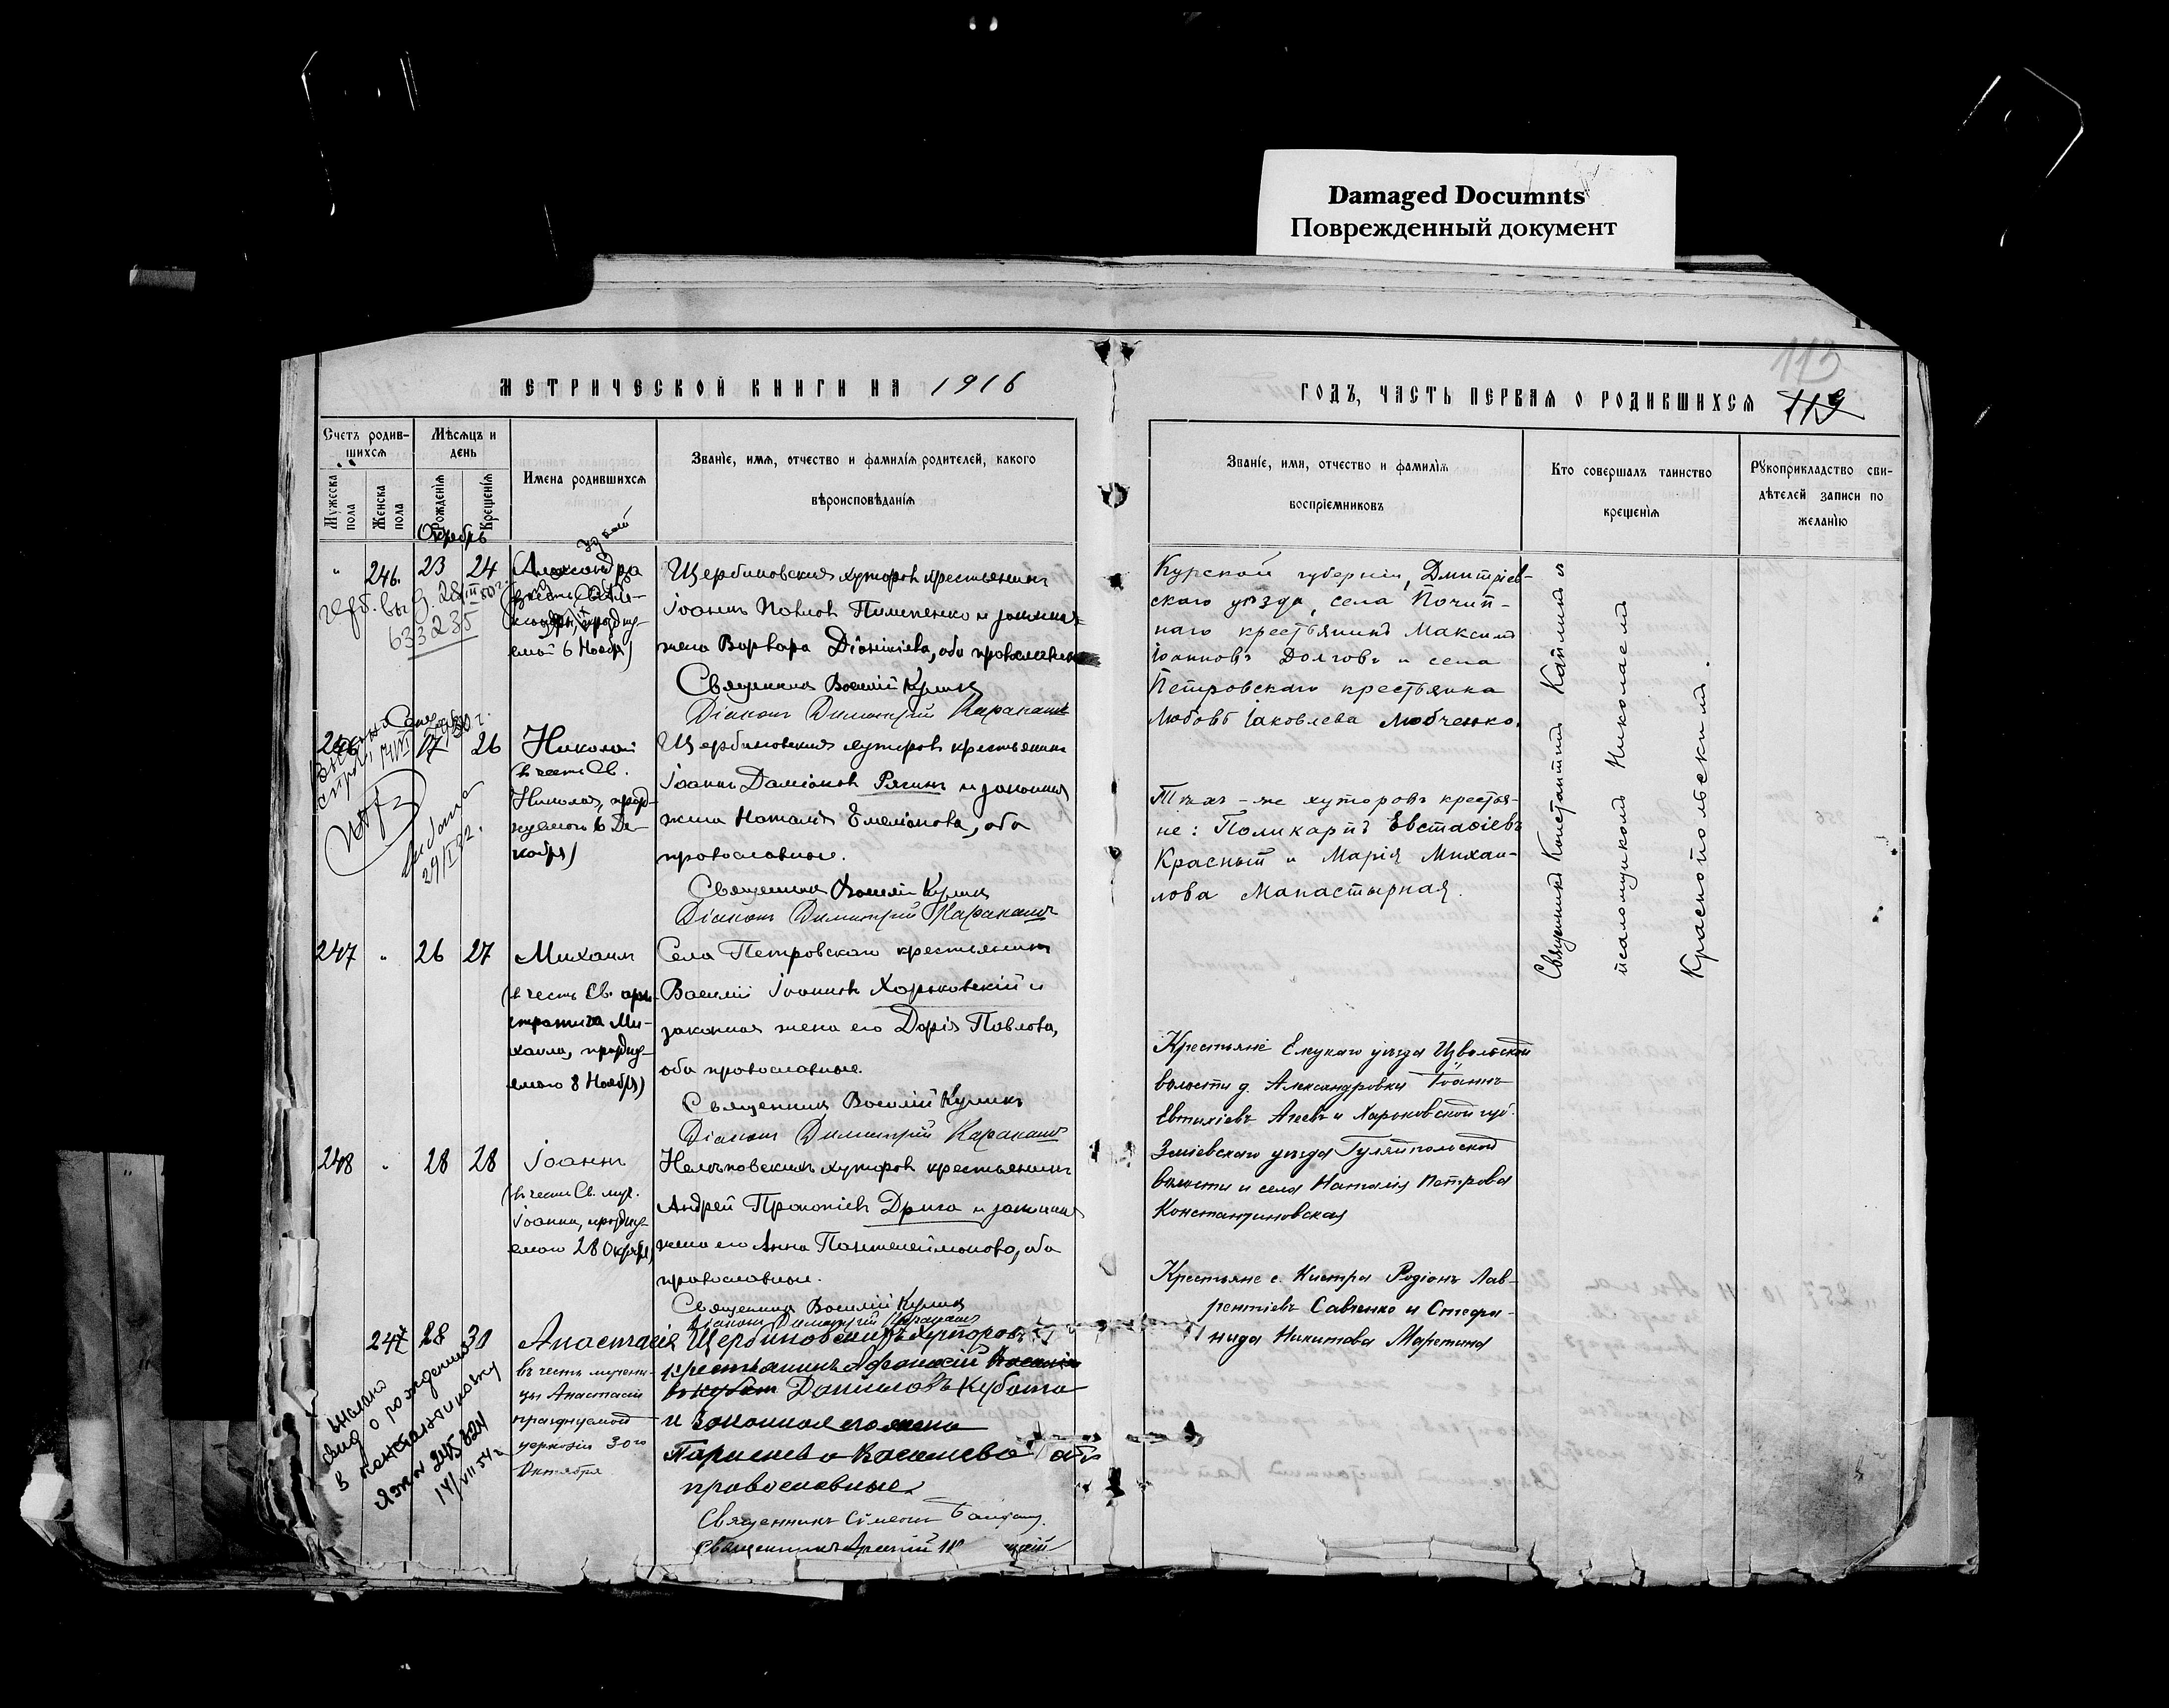 Damaged Documnts
Поврежденный документ
113
МЕТРИЧЕСКОЙ КНИГИ НА 1916
ГОДЪ, ЧАСТЬ ПЕРВАЯ О РОДИВШИХСЯ 119
Счетъ родив-
шихся
Мѣсяцъ и
день
Имена родившихся
Званіе, имя, отчество и фамилія родителей, какого
вѣроисповѣданія
Званіе, имя, отчество и фамилія
воспріемниковъ
Кто совершалъ таинство
крещенія
Рукоприкладство сви-
дѣтелей записи по
желанію
Мужеска
пола
Женска
пола
Рожденія
Крещенія
Октябрь
" 246. 23 24 Александра
празднуе-
емой 6 Ноября)
633235
Щербиновскихъ хуторовъ крестьянинъ
Іоаннъ Павловъ Пилипенко и законная
жена Варвара Діонисіева, оба православные
Священникъ Василій Куликъ
Діаконъ Димитрій Караканъ
Курской губерніи, Дмитріев-
скаго уѣзда, села Почип-
наго крестьянинъ Максимъ
Іоанновъ Долговъ и села
Петровскаго крестьянка
Любовь Іаковлева Любченко.
246 17 26 Николай
въ честь Св.
Николая, празд-
нуемаго 6 Де-
кабря)
выдана
29/I 32.
Щербиновскихъ хуторовъ крестьянинъ
Іоаннъ Даміановъ Рягинъ и законная
жена Наталія Емеліанова, оба
православные.
Священникъ Василій Куликъ
Діаконъ Димитрій Караканъ
Тѣхъ-же хуторовъ крестья-
не: Поликарпъ Евстафіевъ
Красный и Марія Михаи-
лова Манастырная.
247 " 26 27 Михаилъ
(въ честь Св. архи-
стратига Ми-
хаила, праздну-
емаго 8 Ноября)
Села Петровскаго крестьянинъ
Василій Іоанновъ Харьковскій и
законная жена его Дарія Павлова,
оба православные.
Священникъ Василій Куликъ
Діаконъ Димитрій Караканъ
Крестьяне Елецкаго уѣзда Извольской
волости д. Александровки Іоаннъ
Евтихіевъ Агеевъ и Харьковской губ.
Зміевскаго уѣзда Гуляйпольской
волости и села Наталія Петрова
Константиновская
248 " 28 28 Іоаннъ
(въ честь Св. муч.
Іоанна, праздну-
емаго 28 Октября)
Нелѣповскихъ хуторовъ крестьянинъ
Андрей Прокопіевъ Дрига и законная
жена его Анна Пантелеймонова, оба
православные.
Священникъ Василій Куликъ
Діаконъ Димитрій Караканъ
Крестьяне с. Кистра Родіонъ Лав-
рентіевъ Савченко и Стефа-
нида Никитова Маретина
247 28 30 Анастасія
въ честь мучени-
цы Анастасіи
празднуемой
церковію 30го
Октября
Щербиновскихъ хуторовъ
крестьянинъ Афанасій
Даниловъ Кубата
и законная его жена
Параскева Васильева оба
православные
Священникъ Симеонъ
Священникъ
выдано
свид о рождении
14/VII 54 г
Священникъ Константинъ
псаломщикомъ Николаемъ
Краснопольскимъ.